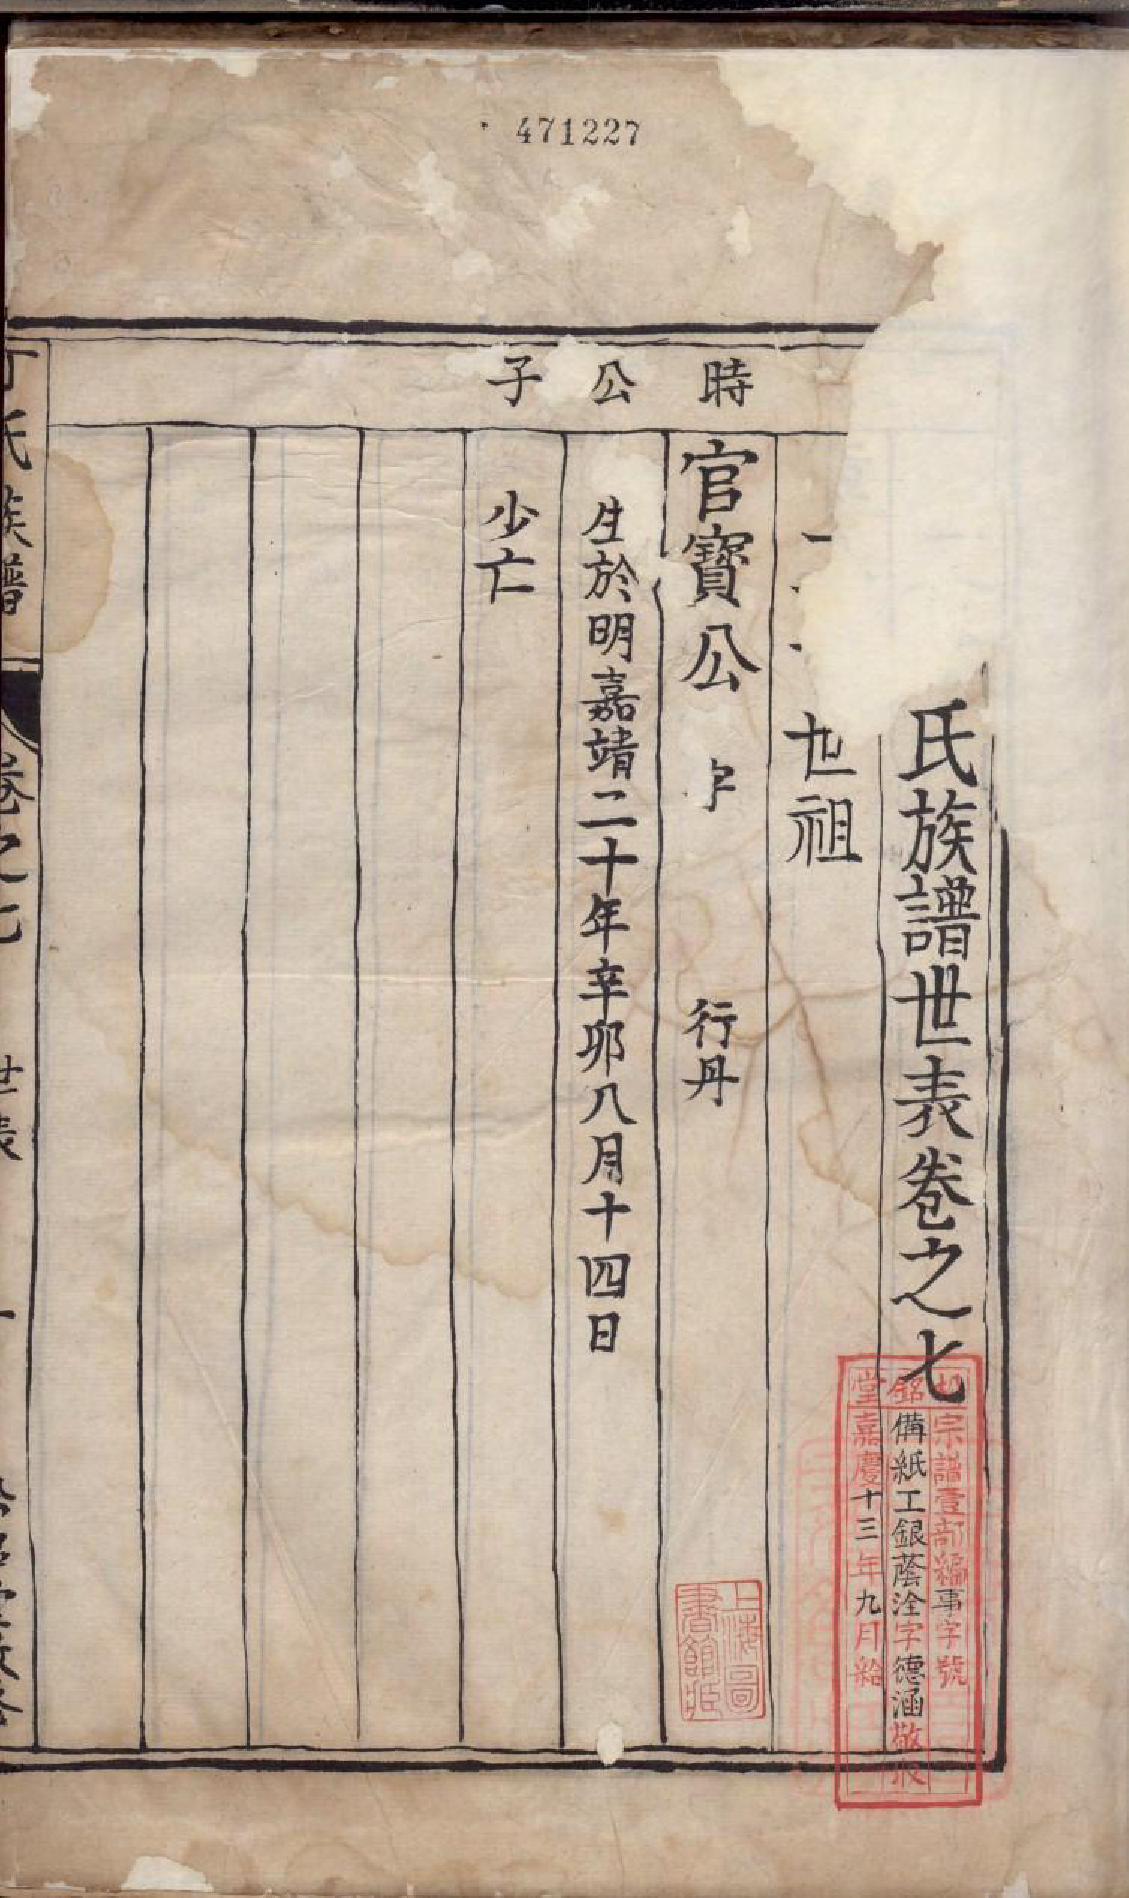 471227
氏族譜世表卷之七
世祖
時公子
官寶公 行丹
生於明嘉靖二十年辛卯八月十四日
少亡
宗譜壹部編事字號
銘備紙工銀蔭洤字德涵敬收
堂嘉慶十三年九月給
上海圖書館藏
氏族譜 卷之七 世表